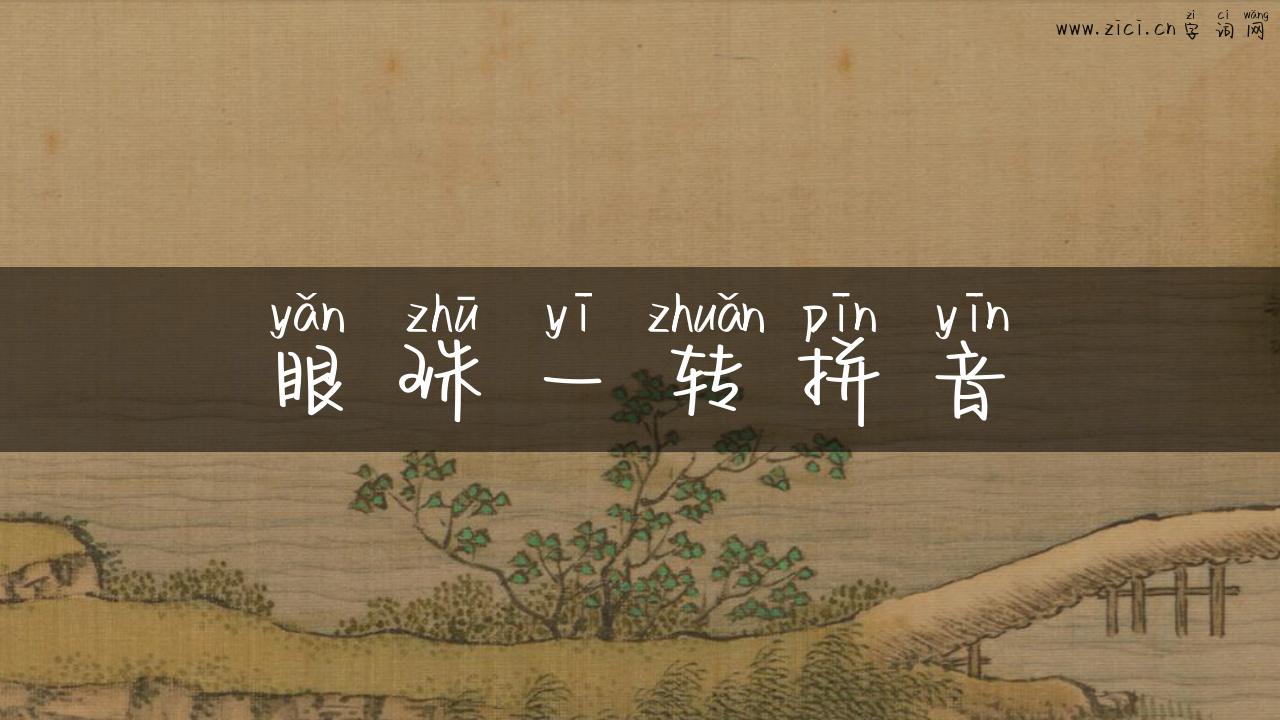 zì cí wǎng
www.zici.cn 字 词 网
yǎn zhū yī zhuǎn pīn yīn
眼 珠 一 转 拼 音